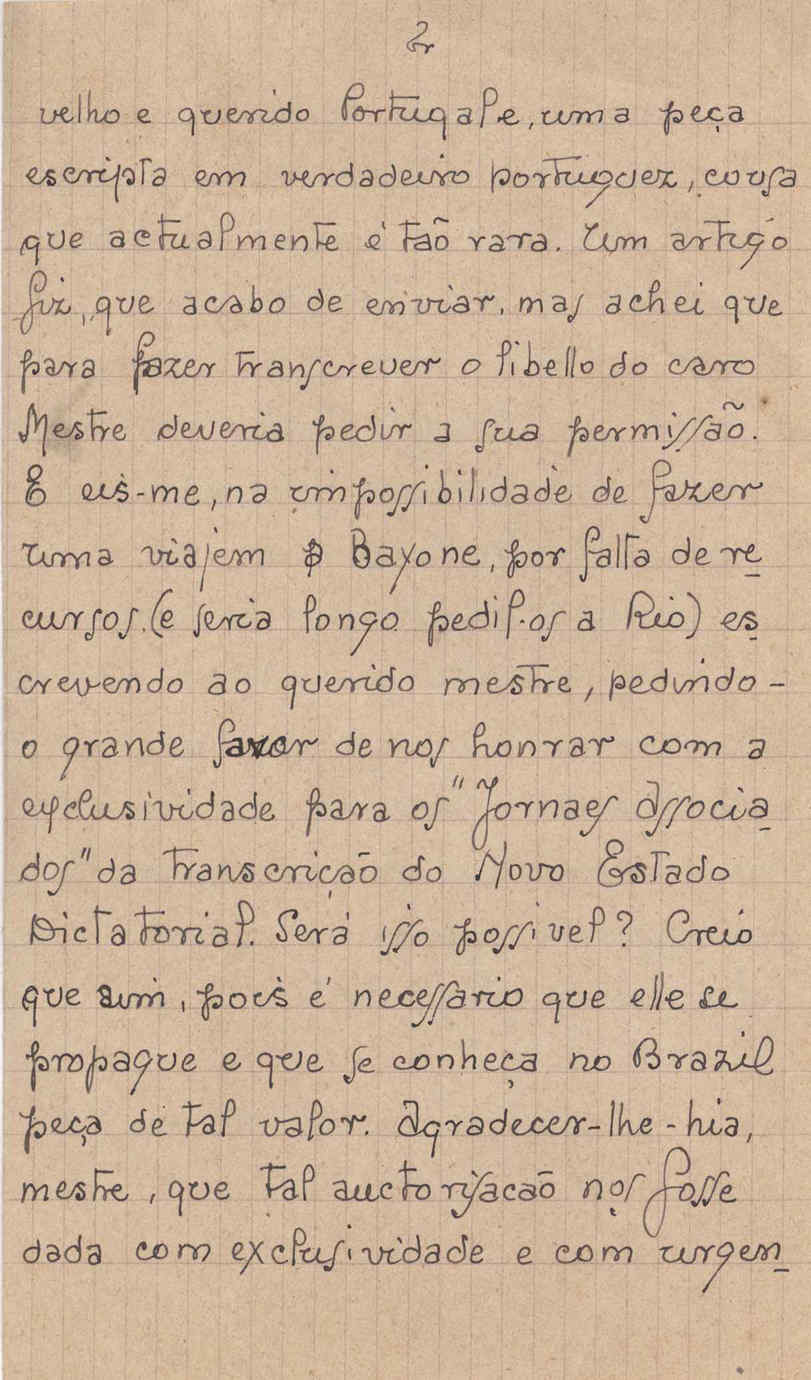 2
velho e querido Portugal e, uma peça
escripta em verdadeiro portuguez, cousa
que actualmente é taõ rara. Um artigo
fiz, que acabo de enviar, mas achei que
para fazer transcrever o libello do caro
Mestre deveria pedir a sua permissaõ.
E eis-me, na impossibilidade de fazer
uma viajem a Bayone, por falta de re
cursos (e seria longo pedil-os a Rio) es
crevendo ao querido mestre, pedindo-
o grande favor de nos honrar com a
exclusividade para os "Jornaes Associa
dos" da transcriçaõ do Novo Estado
Dictatorial. Será isso possivel? Creio
que sim, pois é necessario que elle se
propague e que se conheça no Brazil
peça de tal valor. Agradecer-lhe-hia,
mestre, que tal auctorisacaõ nos fosse
dada com exclusividade e com urgen